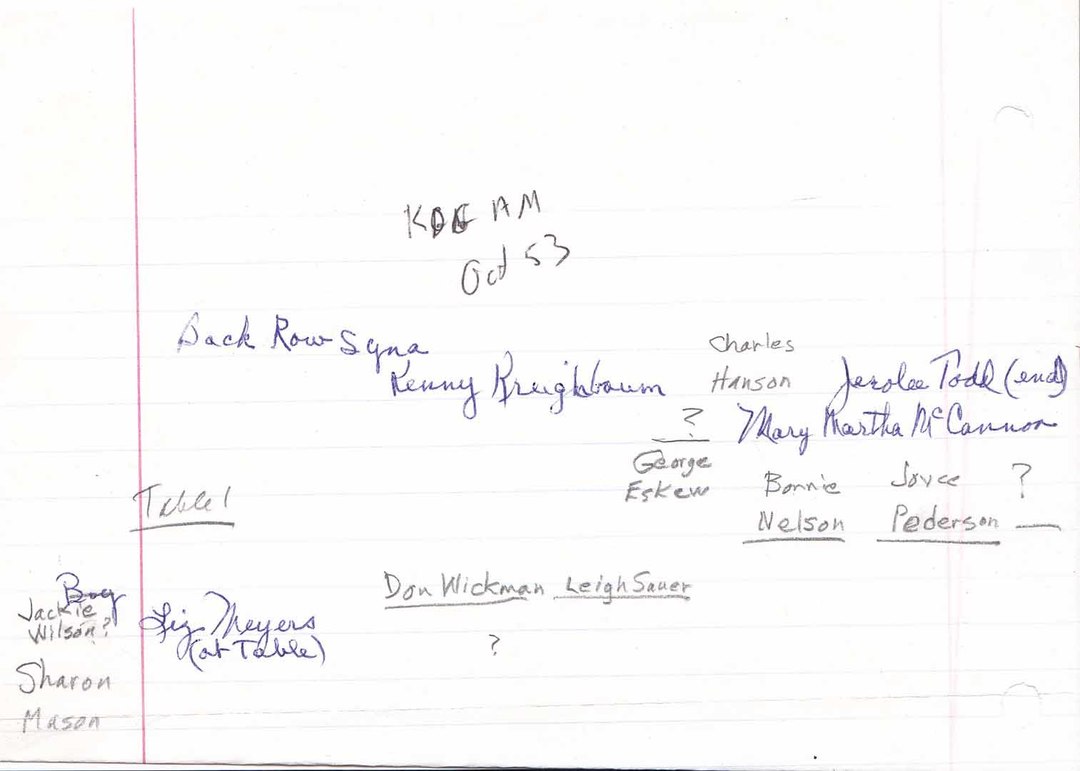 AM
Oct 53
Back Row
Kenny Kreighbaum
Charles
Hanson
Jerolee Todd (end)
?
Mary Martha McCannon
George
Eskew
Bonnie
Nelson
Joyce
Pederson
?
Table 1
Don Wickman
Leigh Sauer
?
Boy
Jackie
Wilson?
Liz Meyers
(at Table)
Sharon
Mason